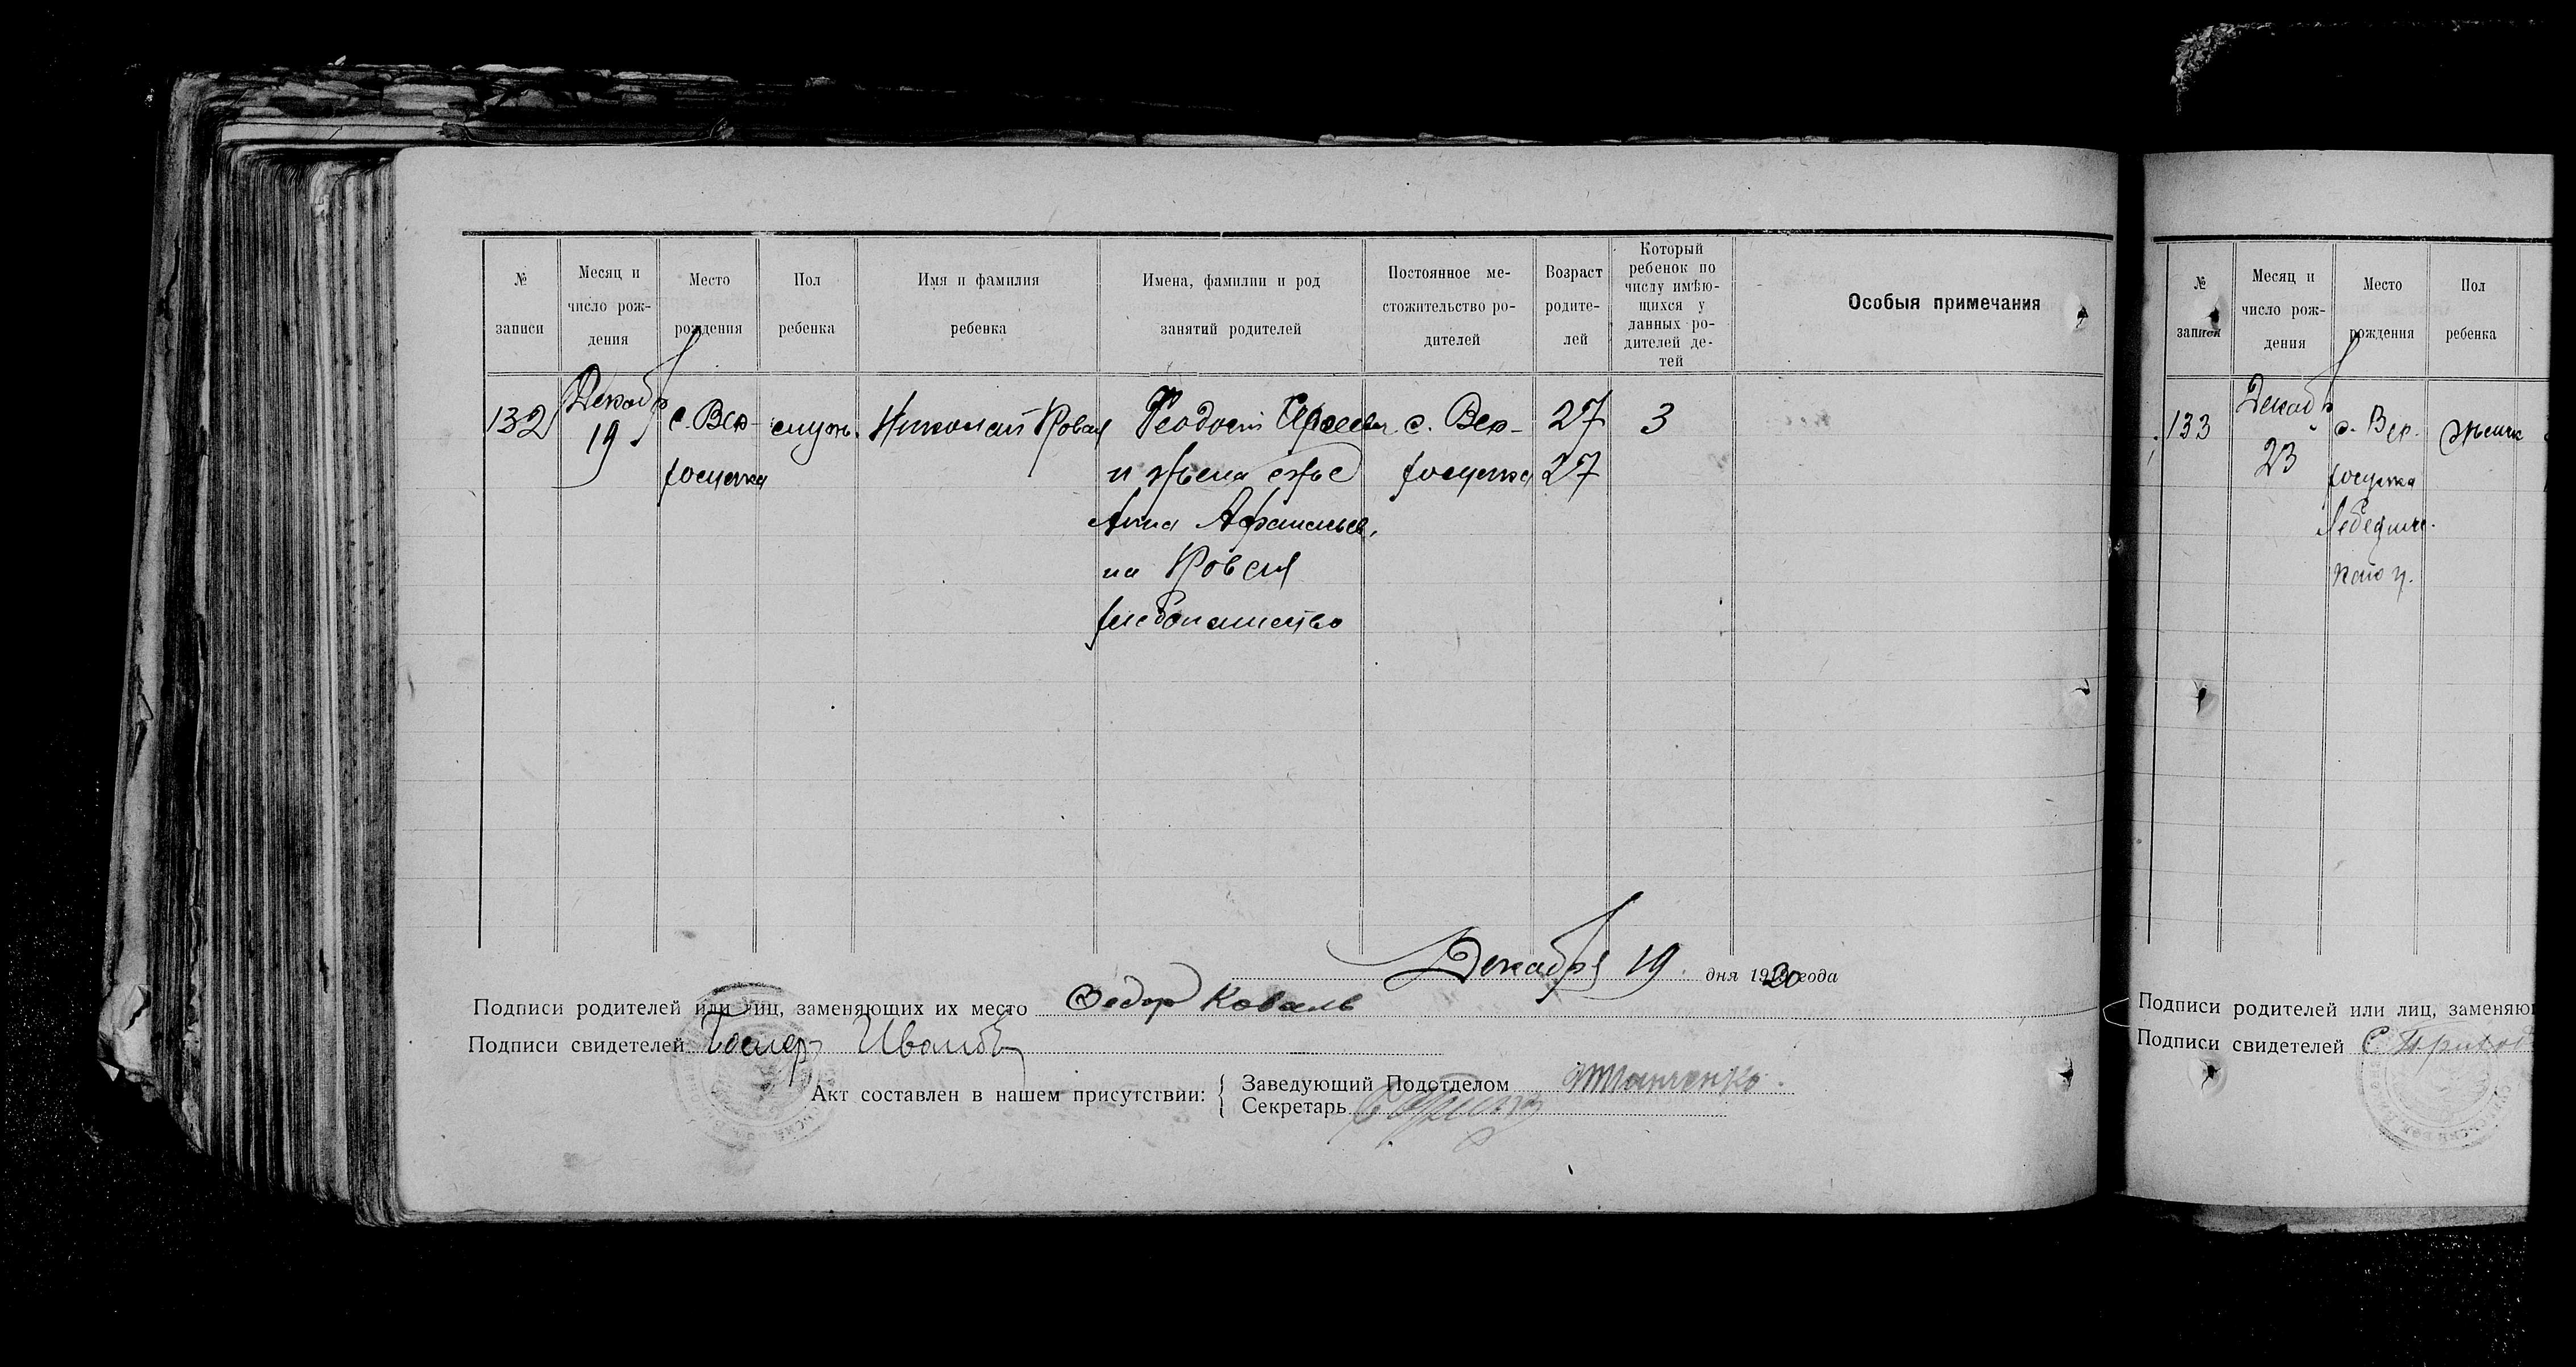 № записи
Месяц и число рождения
Место рождения
Пол ребенка
Имя и фамилия ребенка
Имена, фамилии и род занятий родителей
Постоянное местожительство родителей
Возраст родителей
Который ребенок по числу имѣющихся у данных родителей детей
Особыя примечания
132
Декабр
19
с. Вер-
хосулка
Николай Ковал
Феодосий
и жена
Анна Афанасьев.
на
хлебопашество
с. Вер-
хосулка
27
27
3
Декабря 19 дня 1920 года
Подписи родителей или лиц, заменяющих их место Федор Коваль
Подписи свидетелей
Акт составлен в нашем присутствии:
Заведующий Подотделом
Секретарь
№ записи
Месяц и число рождения
Место рождения
Пол ребенка
133
Декаб
23
с. Вер.
хосулка
Лебединс.
каго у.
женск
Подписи родителей или лиц, заменяю
Подписи свидетелей